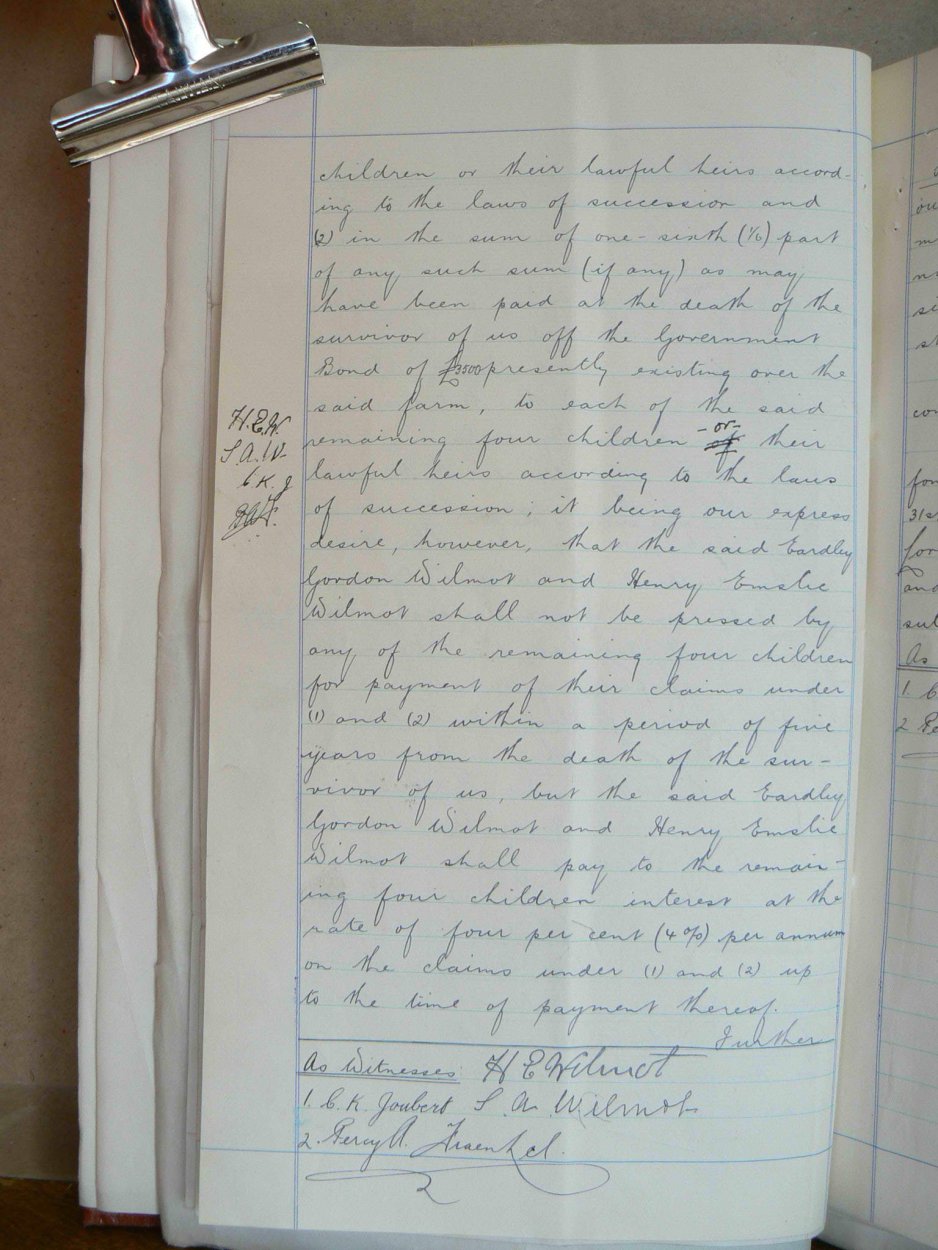 children or their lawful heirs accord-
ing to the laws of succession and
(2) in the sum of one-sixth (1/6) part
of any such sum (if any) as may
have been paid at the death of the
survivor of us off the Government
Bond of £3500 presently existing over the
said farm, to each of the said
remaining four children -or- of their
lawful heirs according to the laws
of succession; it being our express
desire, however, that the said Eardley
Gordon Wilmot and Henry Emslie
Wilmot shall not be pressed by
any of the remaining four children
for payment of their claims under
(1) and (2) within a period of five
years from the death of the sur-
vivor of us, but the said Eardley
Gordon Wilmot and Henry Emslie
Wilmot shall pay to the remain-
ing four children interest at the
rate of four per cent (4%) per annum
on the claims under (1) and (2) up
to the time of payment thereof.
Further
H.E.W.
S.A.W.
C K J
As Witnesses: H E Wilmot
1. C. K. Joubert S A Wilmot
2. Percy A. Fraenkel.
2
31s
for
and
As
1. C
2 Pe